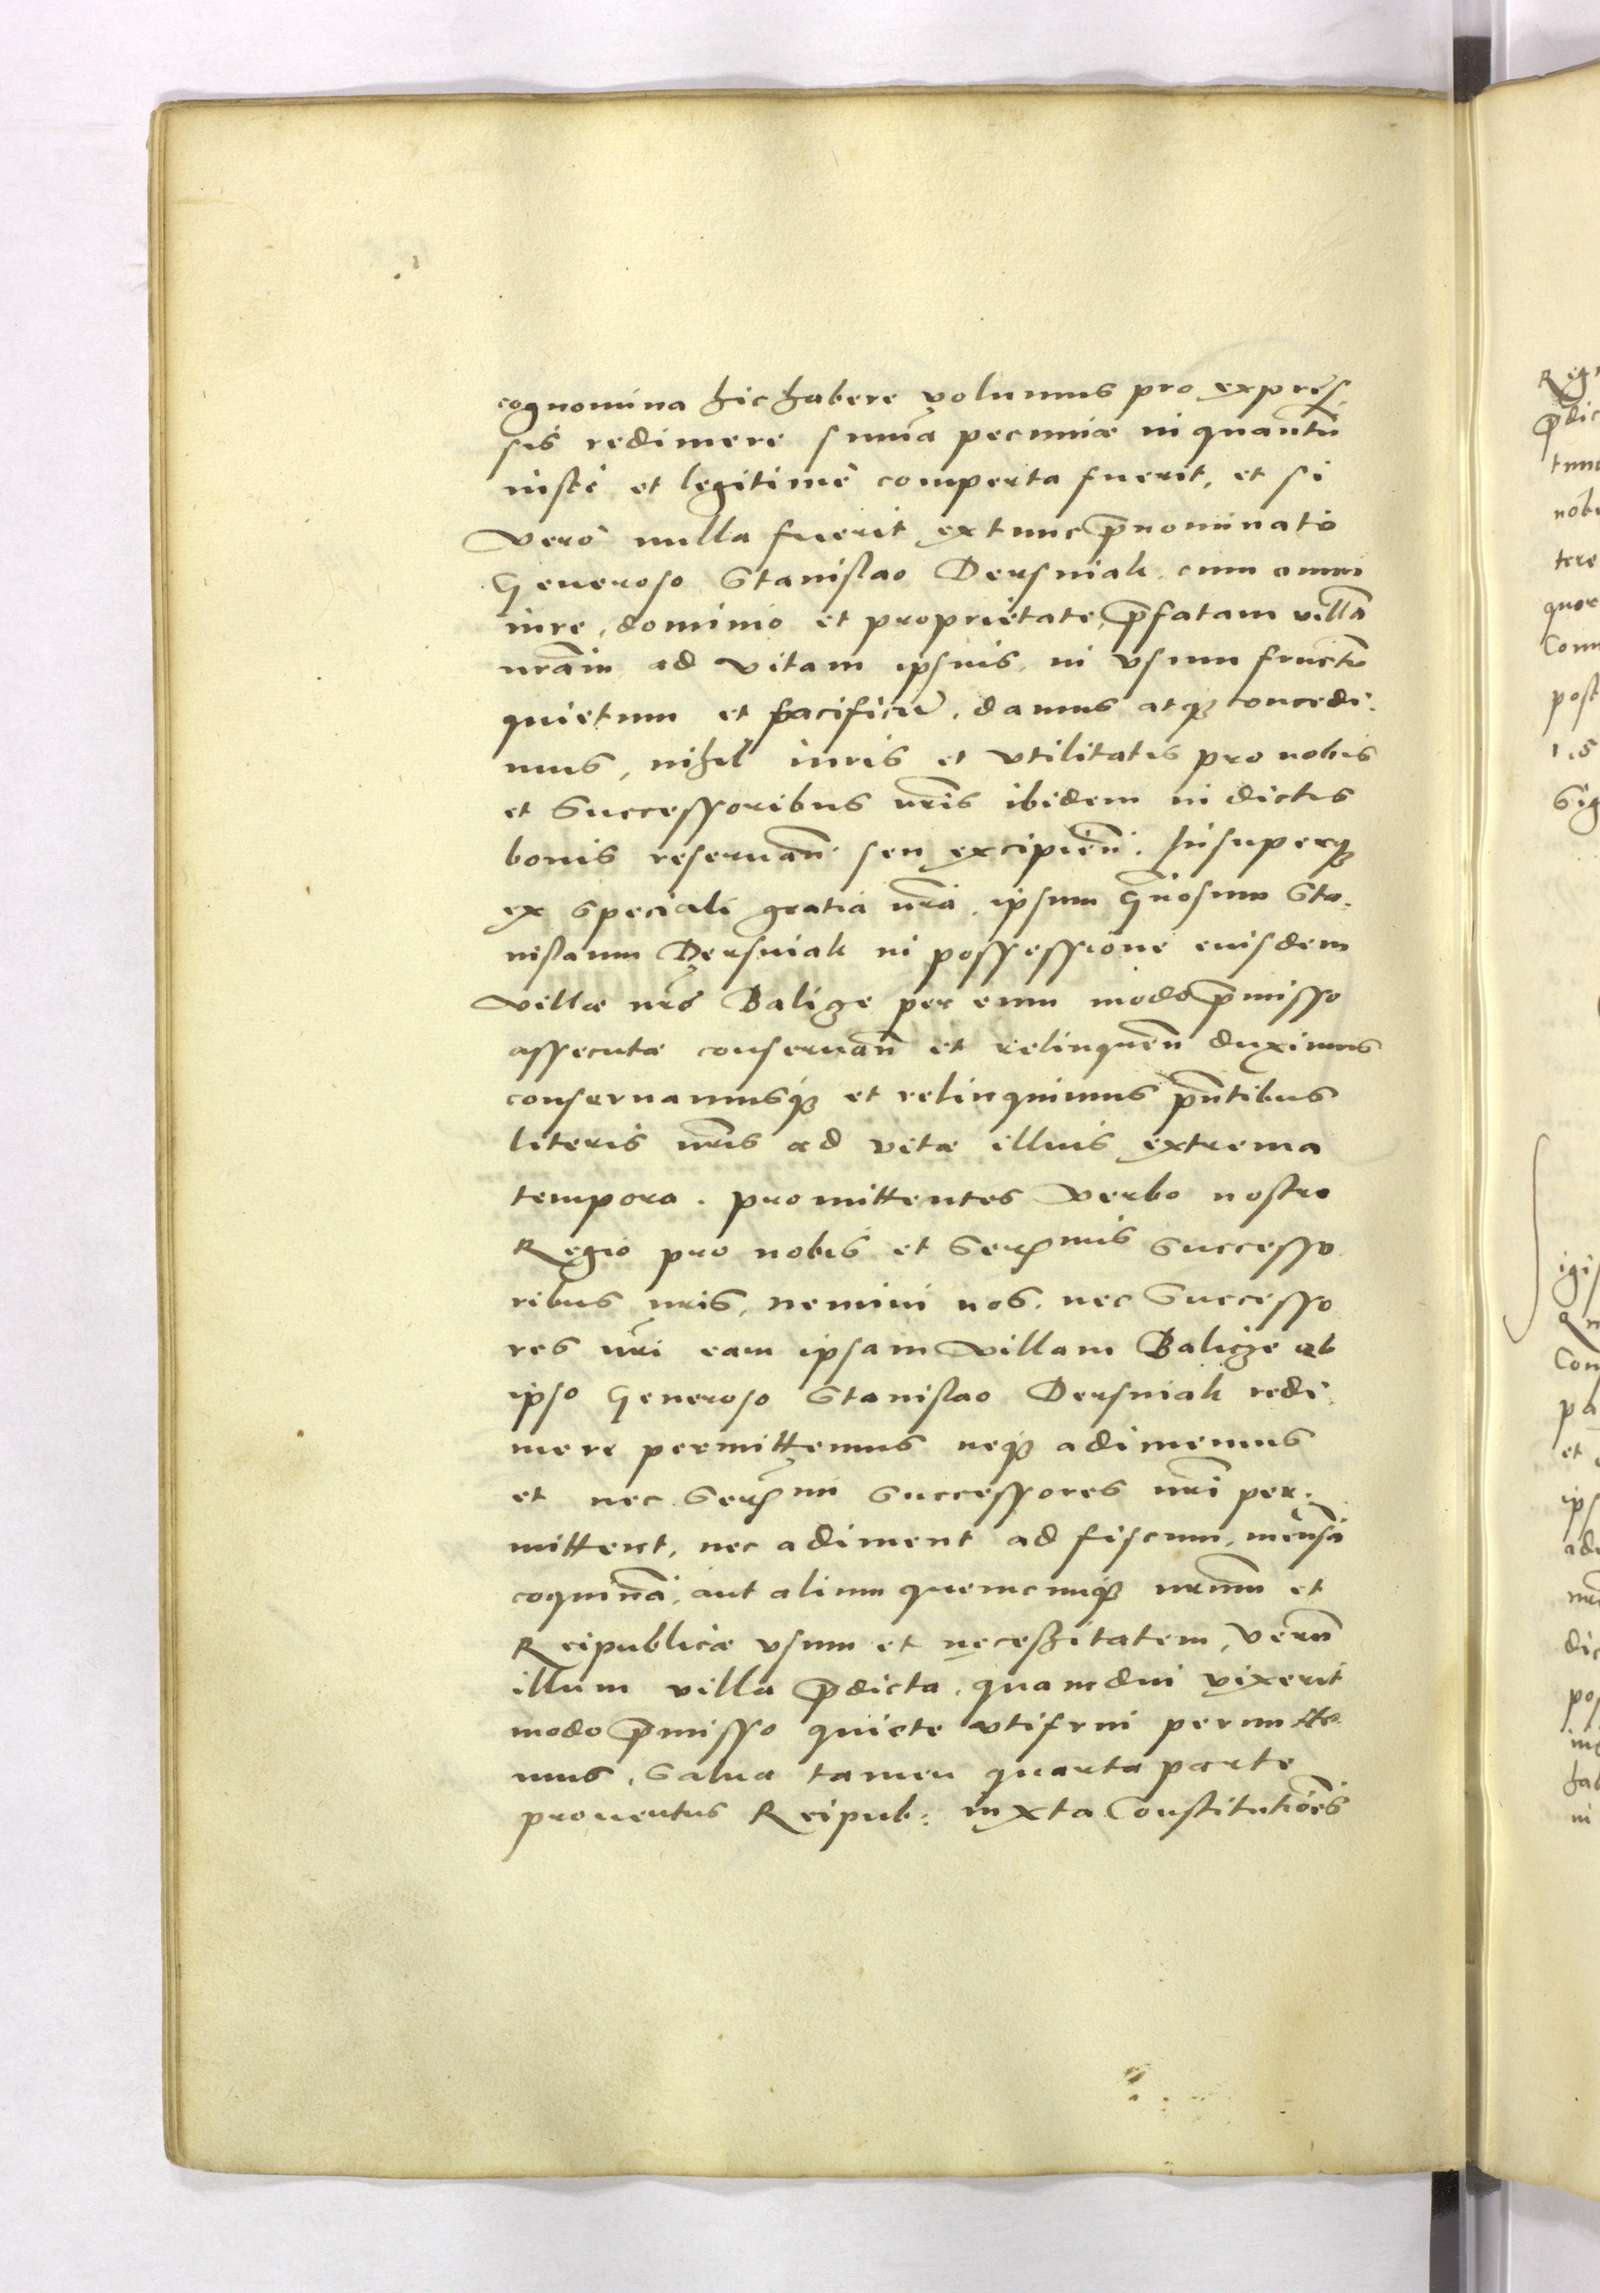 cognomina hic habere volumus pro expres,
sis redimere sum̃a pecuniæ in quantũ
iustè et legitimè comperta fuerit, et si
verò nulla fuerit extunc p̃nominato
Generoso Stanislao Dersniak cum omni
iure, dominio et proprietate, p̃fatam villã
nr̃am ad vitam ipsius in vsum fructũ
quietum et pacificũ, damus atq3 concedi,
mus, nihil iuris et vtilitatis pro nobis
et Successoribus nr̃is ibidem in dictis
bonis reseruan̄ seu excipien̄. Insuperq3
ex speciali gratia nr̃a, ipsum Gñosum Sta,
nislaum Dersniak in possessione eiusdem
villæ nr̃æ Balige per eum modo p̃misso
assecutæ conseruan̄ et relinquen̄ duximus
conseruamusq3 et relinquimus p̃ntibus
literis nr̃is ad vitæ illius extrema
tempora. promittentes verbo nostro
Regio pro nobis et Ser^mis Successo
ribus nr̃is, nemini nos, nec Successo
res nr̃i eam ipsam villam Balige ab
ipso Generoso Stanislao Dersniak redi,
mere permittemus neq3 adimemus
et nec Ser^mi Successores nr̃i per,
mittent, nec adiment ad fiscum, mensã
coquinã, aut alium quemcunq3 nr̃um et
Reipublicæ vsum et necessitatem, Verũ
illum villa p̃dicta, quamdiu vixerit
modo p̃misso quiete vtifrui permitte
mus, Salua tamen quarta parte
prouentus Reipub: iuxta Constitutiões